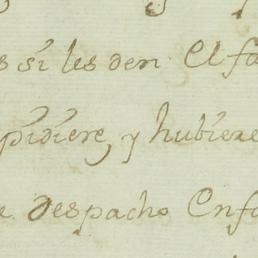 s si les den El fa
pidiere, y hubiere
e despacho Enfo